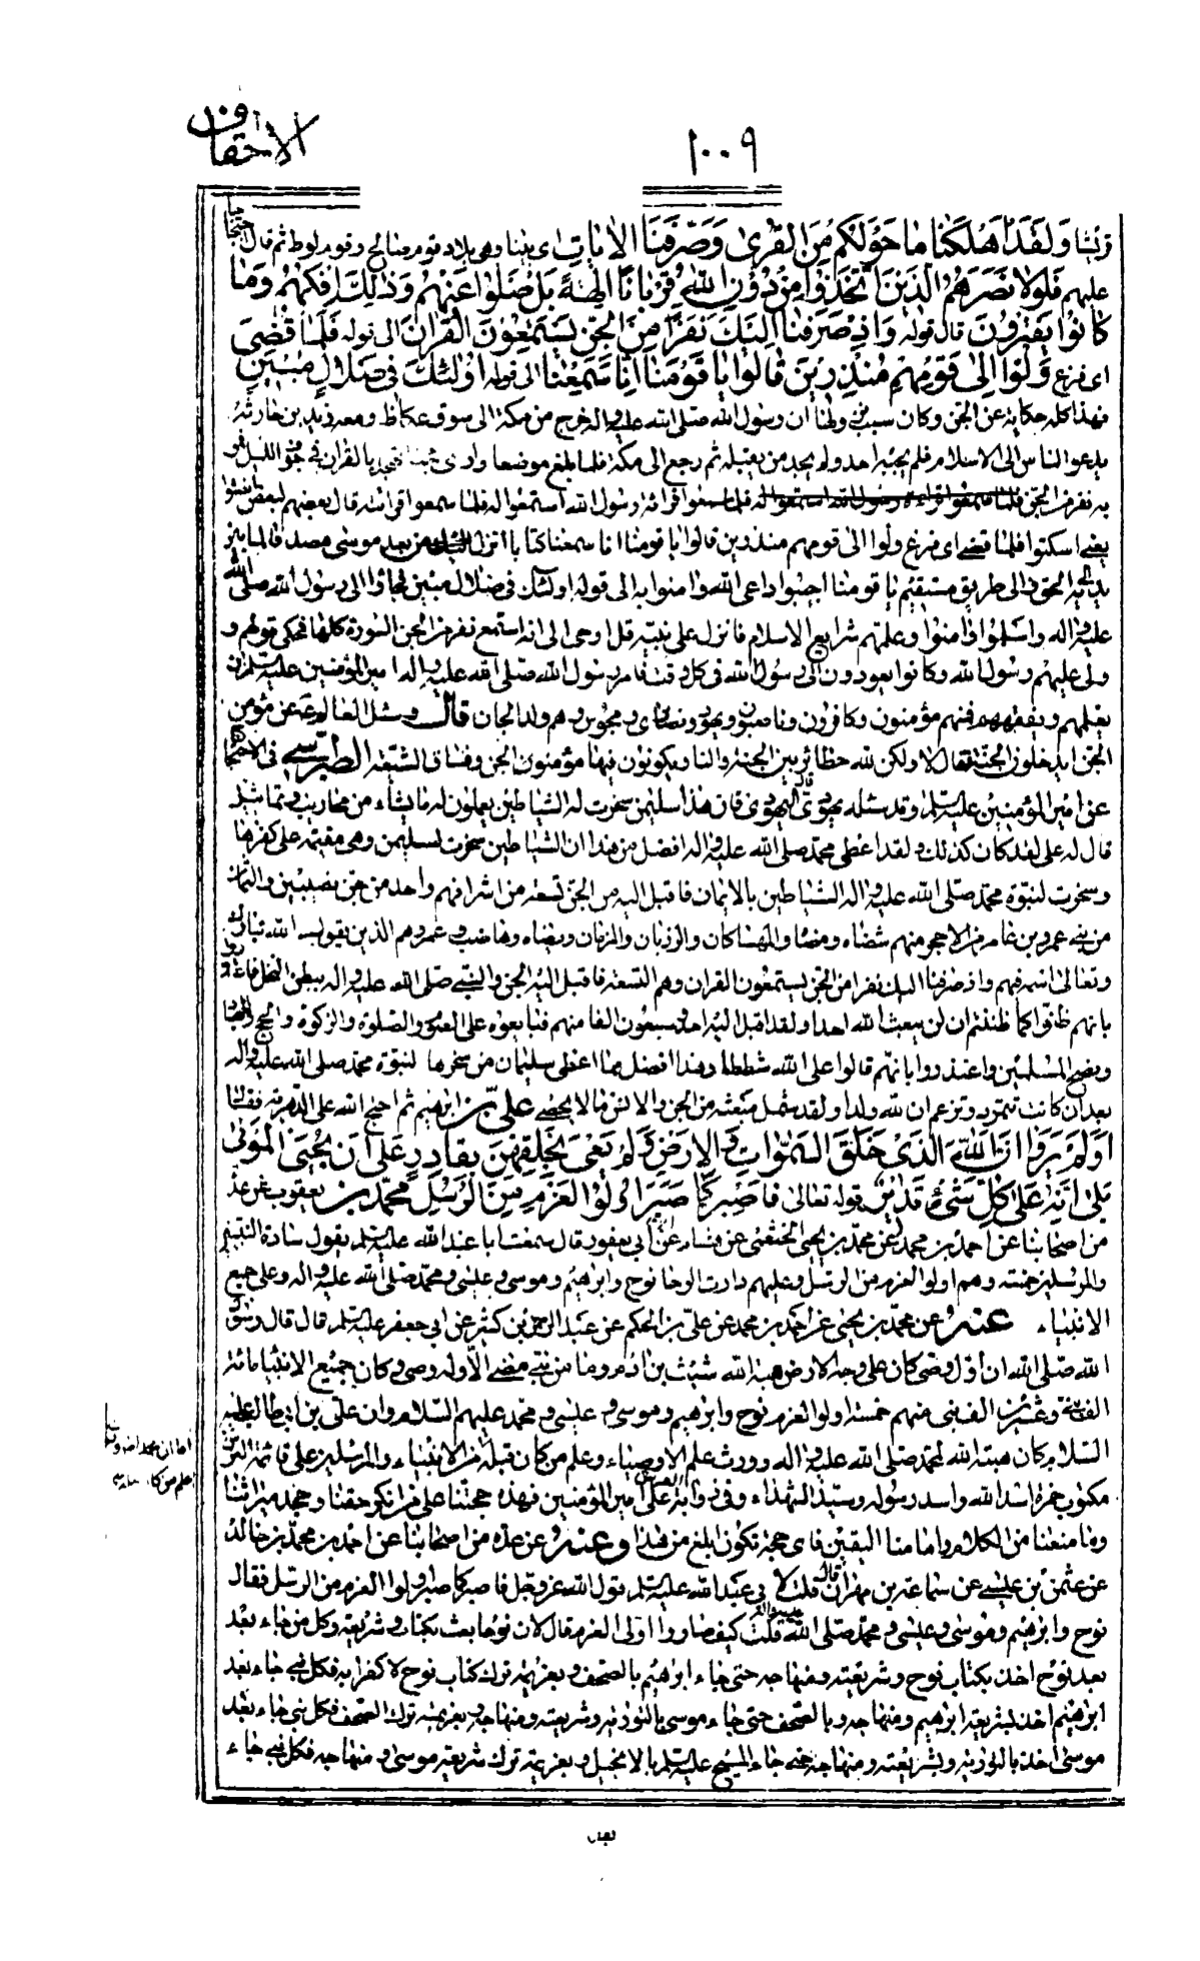 الاحقاف
١٠٠٩
قريشا وَلَقَدْ اَهْلَكْنا ما حَوْلَكُمْ مِنَ الْقُرىٰ وَصَرَّفْنَا الْاٰياتِ اى بينا وهى بلاد قوم صالح وقوم لوط ثم قال احتجاجا
عليهم فَلَوْلا نَصَرَهُمُ الَّذينَ اتَّخَذُوا مِنْ دُونِ اللّٰهِ قُرْباناً اٰلِهَةً بَلْ ضَلُّوا عَنْهُمْ وَذٰلِكَ اِفْكُهُمْ وَما
كانُوا يَفْتَرُونَ قال قوله وَاِذْ صَرَفْنا اِلَيْكَ نَفَراً مِنَ الْجِنِّ يَسْتَمِعُونَ الْقُرْاٰنَ الى قوله فَلَمّا قُضِيَ
اى فرغ وَلَّوْا اِلىٰ قَوْمِهِمْ مُنْذِرينَ قالُوا يا قَوْمَنا اِنّا سَمِعْنا الى قوله اُولٰئِكَ فى ضَلالٍ مُبينٍ
فهذا كله حكاية عن الجن وكان سبب نزولها ان رسول الله صلى الله عليه واله خرج من مكة الى سوق عكاظ ومعه زيد بن حارثة
يدعو الناس الى الاسلام فلم يجبه احد ولم يجد من يقبله ثم رجع الى مكة فلما بلغ موضعا وادى مجنة تهجد بالقران فى جوف الليل فمر
به نفر من الجن فلما سمعوا قراءة رسول الله استمعوا له فلما سمعوا قرائته قال بعضهم لبعض انصتوا
يعنى اسكتوا فلما قضى اى فرغ ولوا الى قومهم منذرين قالوا يا قومنا انا سمعنا كتابا انزل من بعد موسى مصدقا لما بين
يديه يهدى الى الحق والى طريق مستقيم يا قومنا اجيبوا داعى الله وامنوا به الى قوله اولئك فى ضلال مبين فجاؤا الى رسول الله صلى الله
عليه واله واسلموا وامنوا وعلمهم شرايع الاسلام فانزل على نبيه قل اوحى الى انه استمع نفر من الجن السورة كلها فحكى قولهم و
ولى عليهم رسول الله وكانوا يعودون الى رسول الله فى كل وقت فامر رسول الله صلى الله عليه واله امير المؤمنين عليه السلم ان
يعلمهم ويفقههم فمنهم مؤمنون وكافرون وناصبون ويهود ونصارى ومجوس وهم ولد الجان قال وسئل العالم عن مؤمنى
الجن ايدخلون الجنة فقال لا ولكن لله حظائر بين الجنة والنار يكونون فيها مؤمنون الجن وفساق الشيعة الطبرسى فى الاحتجاج
عن امير المؤمنين عليه السلم وقد سئله يهودى قال اليهودى فان هذا سليمن سخرت له الشياطين يعملون له ما يشاء من محاريب وتماثيل
قال له على لقد كان كذلك ولقد اعطى محمد صلى الله عليه واله افضل من هذا ان الشياطين سخرت لسليمن وهى مقيمة على كفرها
وسخرت لنبوة محمد صلى الله عليه واله الشياطين بالايمان فاقبل اليه من الجن تسعة من اشرافهم واحد من جن نصيبين والثمان
من بنى عمرو بن عامر من الاحجة منهم شضاه ومضاه والهملكان والمرزبان والمازمان ونضاه وهاضب وعمرو وهم الذين يقول الله تبارك
وتعالى اسمه فيهم واذ صرفنا اليك نفرا من الجن يستمعون القران وهم التسعة فاقبل اليه الجن والنبى صلى الله عليه واله ببطن النخل فاعتذروا
بانهم ظنوا كما ظننتم ان لن يبعث الله احدا ولقد اقبل اليه احد وسبعون الفا منهم فبايعوه على الصوم والصلوة والزكوة والحج والجهاد
ونصح المسلمين واعتذروا بانهم قالوا على الله شططا وهذا افضل مما اعطى سليمان من سخرها لنبوة محمد صلى الله عليه واله
بعد ان كانت تتمرد وتزعم ان لله ولدا ولقد شمل مبعثه من الجن والانس ما لا يحصى على بن ابرهيم ثم احتج الله على الدهرية فقال
اَوَلَمْ يَرَوْا اَنَّ اللّٰهَ الَّذى خَلَقَ السَّمٰواتِ وَالْاَرْضَ وَلَمْ يَعْىَ بِخَلْقِهِنَّ بِقادِرٍ عَلىٰ اَنْ يُحْيِىَ الْمَوْتىٰ
بَلىٰ اِنَّهُ عَلىٰ كُلِّ شَىْءٍ قَديرٌ قوله تعالى فَاصْبِرْ كَما صَبَرَ اُولُوا الْعَزْمِ مِنَ الرُّسُلِ محمد بن يعقوب عن عدة
من اصحابنا عن احمد بن محمد عن محمد بن يحيى الخثعمى عن هشام عن ابن ابى يعفور قال سمعت ابا عبد الله عليه السلم يقول سادة النبيين
والمرسلين خمسة وهم اولوا العزم من الرسل وعليهم دارت الرحا نوح وابرهيم وموسى وعيسى ومحمد صلى الله عليه واله وعلى جميع
الانبياء عنه عن محمد بن يحيى عن احمد بن محمد عن على بن الحكم عن عبد الرحمن بن كثير عن ابى جعفر عليه السلم قال قال رسول
الله صلى الله ان اول وصى كان على وجه الارض هبة الله شيث بن ادم وما من نبى مضى الا وله وصى وكان جميع الانبياء مائة
الف نبى وعشرين الف نبى منهم خمسة اولو العزم نوح وابرهيم وموسى وعيسى ومحمد عليهم السلام وان على بن ابيطالب عليه
السلام كان هبة الله لمحمد صلى الله عليه واله وورث علم الاوصياء وعلم من كان قبله من الانبياء والمرسلين على قائمة العرش
مكتوب حمزة اسد الله واسد رسوله وسيد الشهداء وفى ذوابة العرش على امير المؤمنين فهذه حجتنا على من انكر حقنا وجحد ميراثنا
وما منعنا من الكلام وامامنا اليقين فاى حجة تكون ابلغ من هذا وعنه عن عدة من اصحابنا عن احمد بن محمد بن خالد
عن عثمن بن عيسى عن سماعة بن مهران قال قلت لابى عبد الله عليه السلم قول الله عز وجل فاصبر كما صبر اولوا العزم من الرسل فقال
نوح وابرهيم وموسى وعيسى ومحمد صلى الله عليه واله قلت كيف صاروا اولى العزم قال لان نوحا بعث بكتاب وشريعة وكل من جاء بعد
بعد نوح اخذ بكتاب نوح وشريعته ومنهاجه حتى جاء ابراهيم بالصحف وبعزيمة ترك كتاب نوح لا كفرا به فكل نبى جاء بعد
ابرهيم اخذ بشريعة ابرهيم ومنهاجه وبالصحف حتى جاء موسى بالتورية وشريعته ومنهاجه وبعزيمة ترك الصحف فكل نبى جاء بعد
موسى اخذ بالتورية وبشريعته ومنهاجه حتى جاء المسيح عليه السلم بالانجيل وبعزيمة ترك شريعة موسى ومنهاجه فكل نبى جاء
اما ان محمدا ورث
علم من كان
بعد